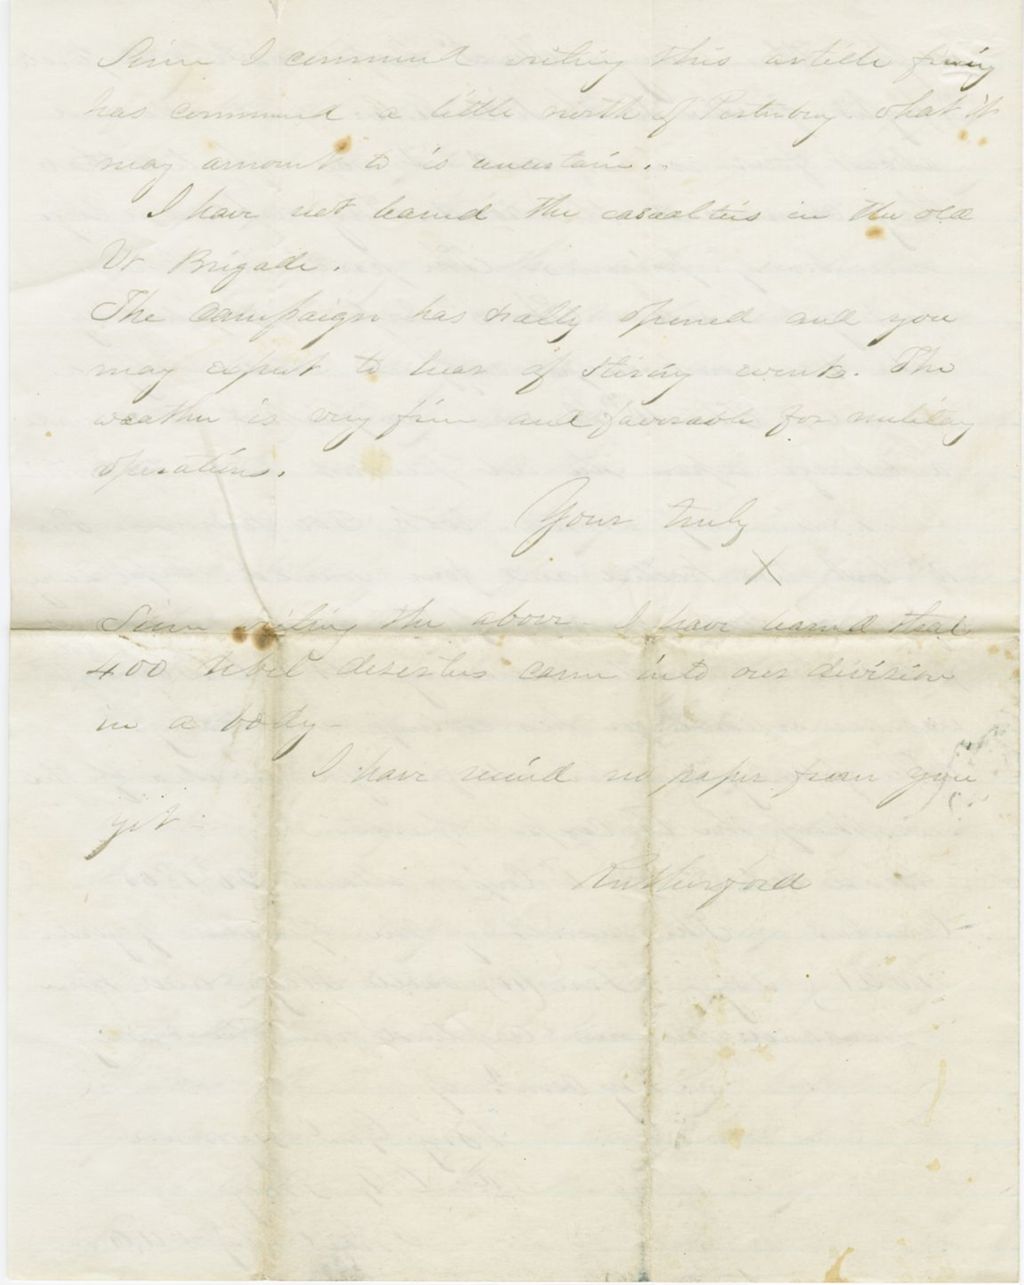 Since I commenced writing this article firing
has commenced a little north of Petersburg. what it
may amount to is uncertain.
I have not learned the casualties in the old
Vt Brigade.
The campaign has really opened and you
may expect to hear of stiring events. The
weather is very fine and favorable for military
operations.
Yours truly
X
Since writing the above I have learned that
400 rebel deserters came into our division
in a body-
I have received no paper from you
yet-
Rutherford